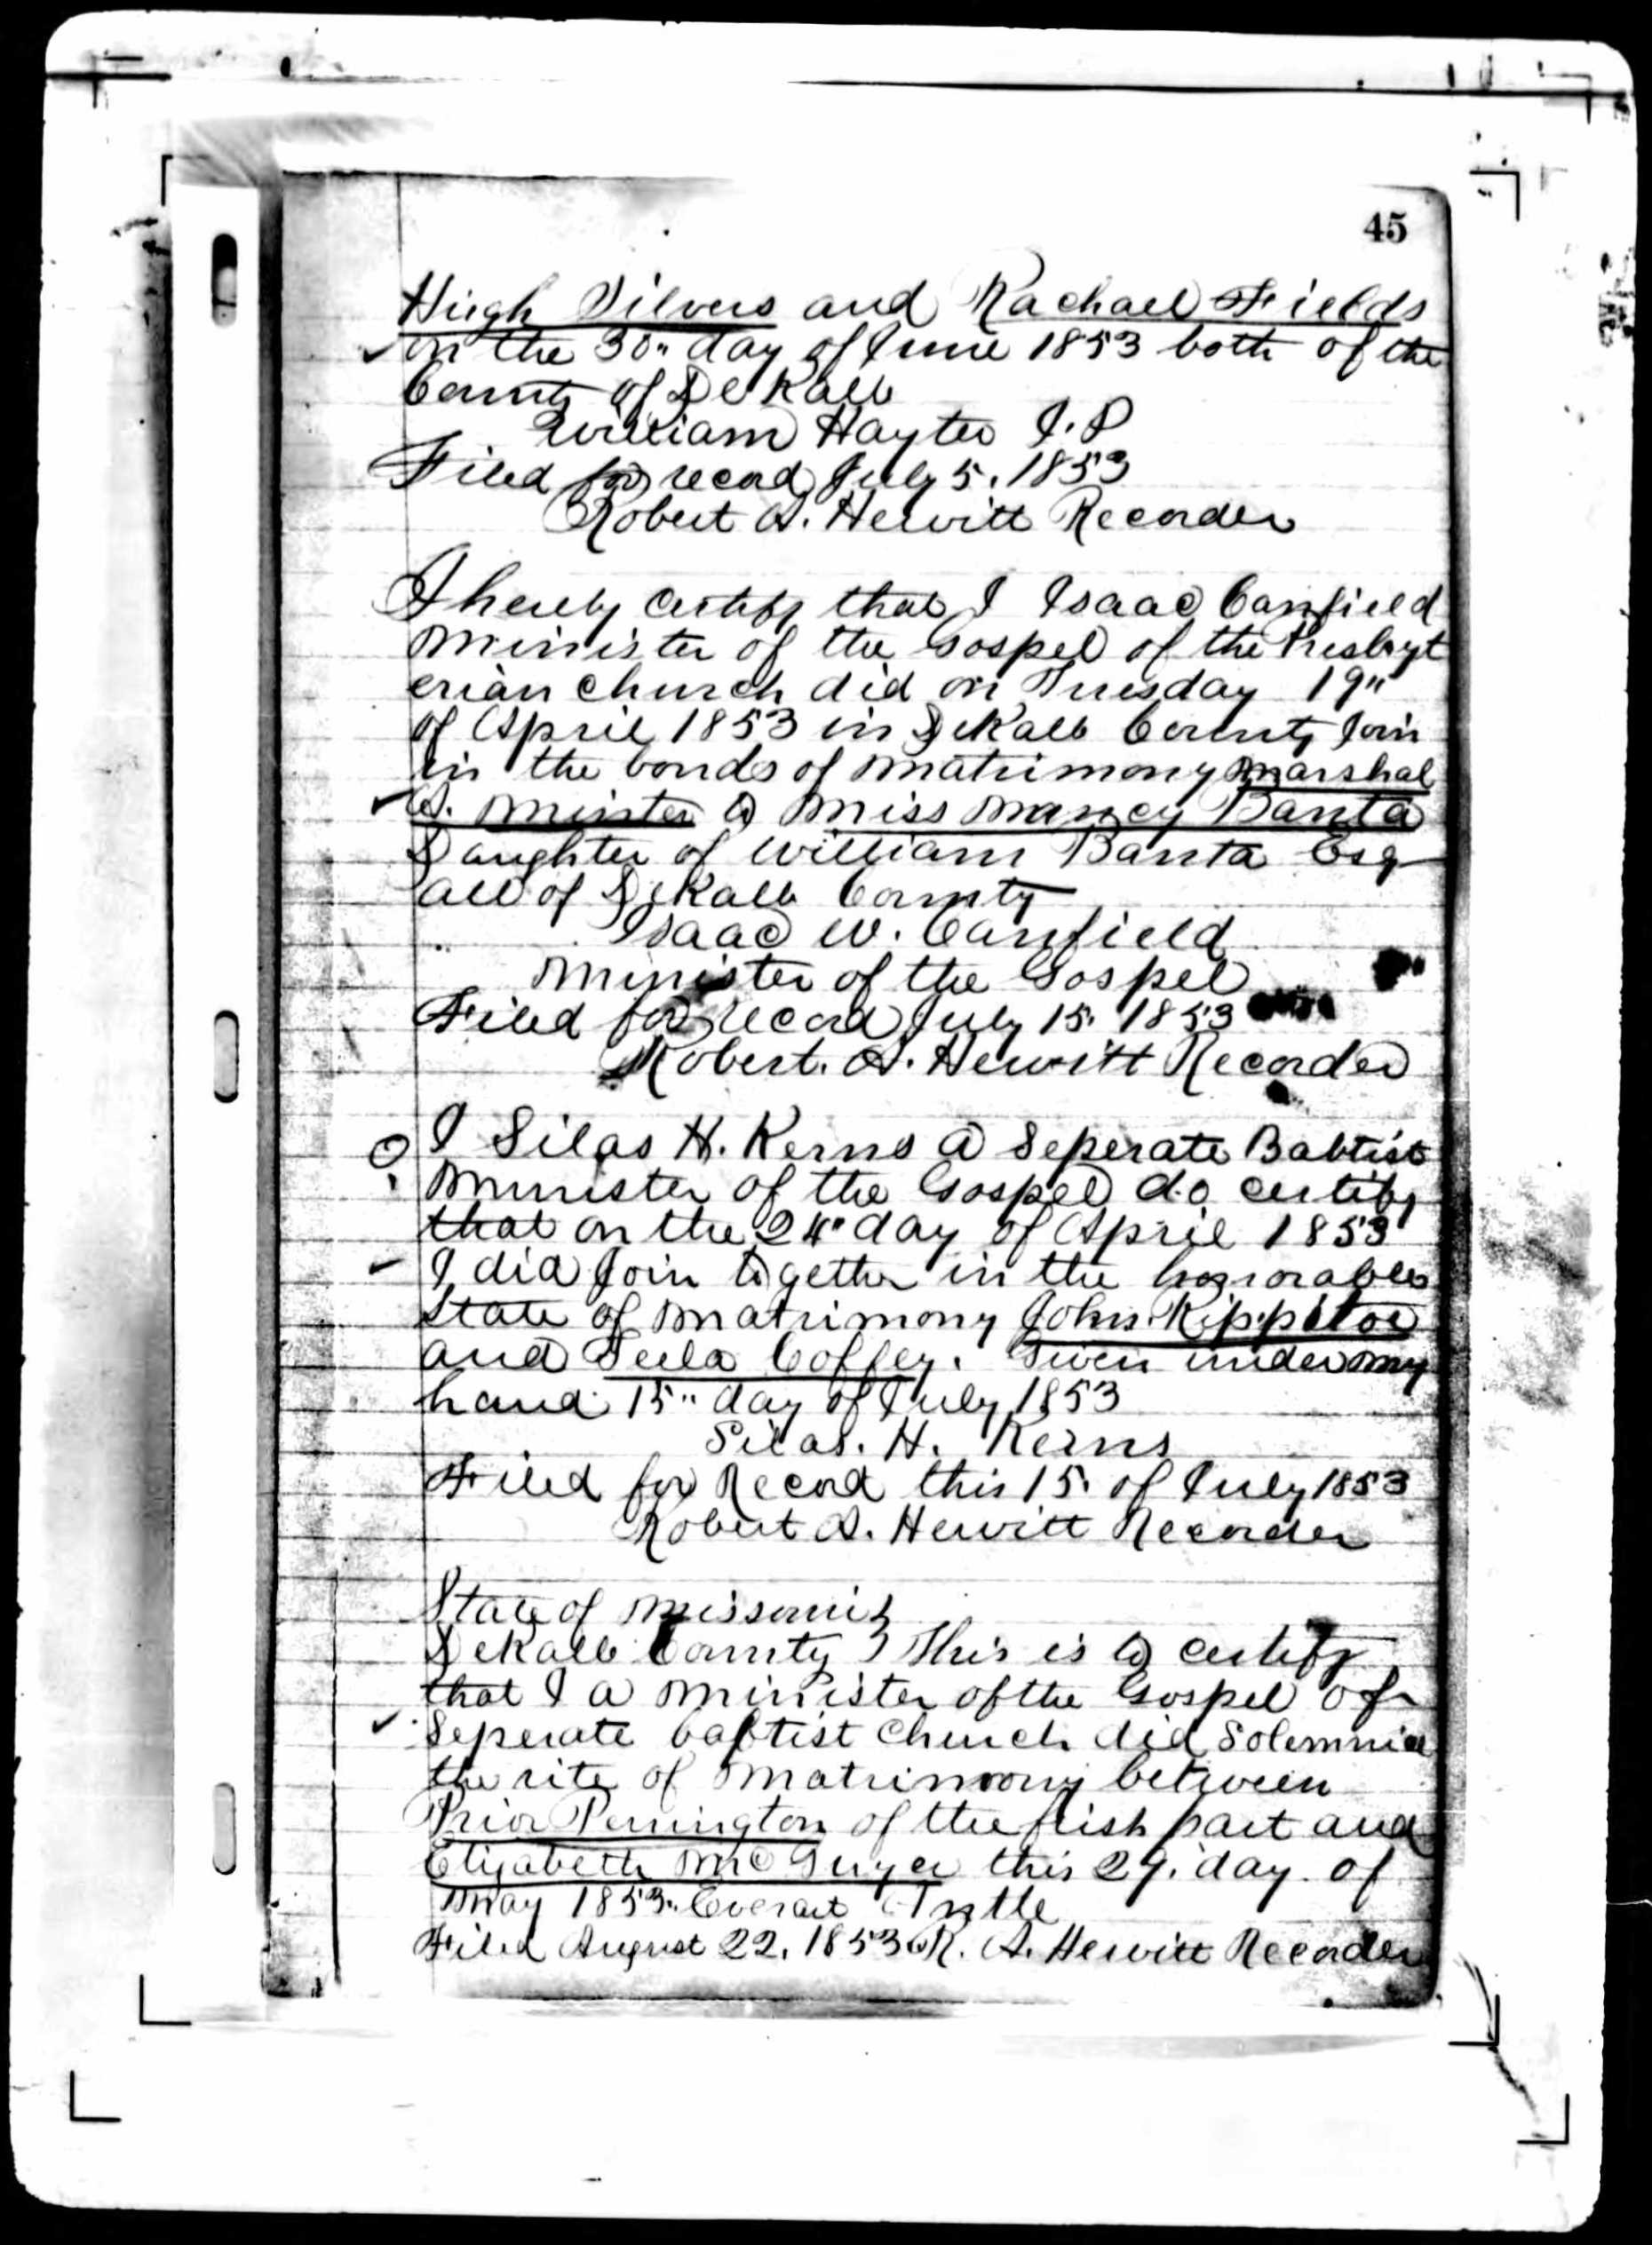 45
Hugh Silvers and Rachael Fields
on the 30" day of June 1853 both of the
County of DeKalb
William Hayter J.P
Filed for record July 5. 1853
Robert A. Hewitt Recorder
I hereby certify that I Isaac Canfield
minister of the Gospel of the Presbyt
erian church did on Tuesday 19"
of April 1853 in DeKalb County Join
in the bonds of matrimony Marshal
minter to miss Nancy Banta
Daughter of William Banta Esq
all of DeKalb County
Isaac W. Canfield
Minister of the Gospel
Filed for record July 15. 1853
Robert. A. Hewitt Recorder
I Silas H. Kerns a Seperate Babtist
minister of the Gospel do certify
that on the 24" day of April 1853
I did Join together in the honorable
state of matrimony John Rippetoe
and Coffey. Given under my
hand 15" day of July 1853
Silas. H. Kerns
Filed for Record this 15. of July 1853
Robert A. Hewitt Recorder
State of Missouri }
DeKalb County } This is to certify
that I a minister of the Gospel of
Seperate baptist church did
the rite of matrimony between
Prior Pennington of the part and
Elizabeth McGuyer this 29. day of
may 1853. Everart Tutle
Filed August 22. 1853 R. A. Hewitt Recorder